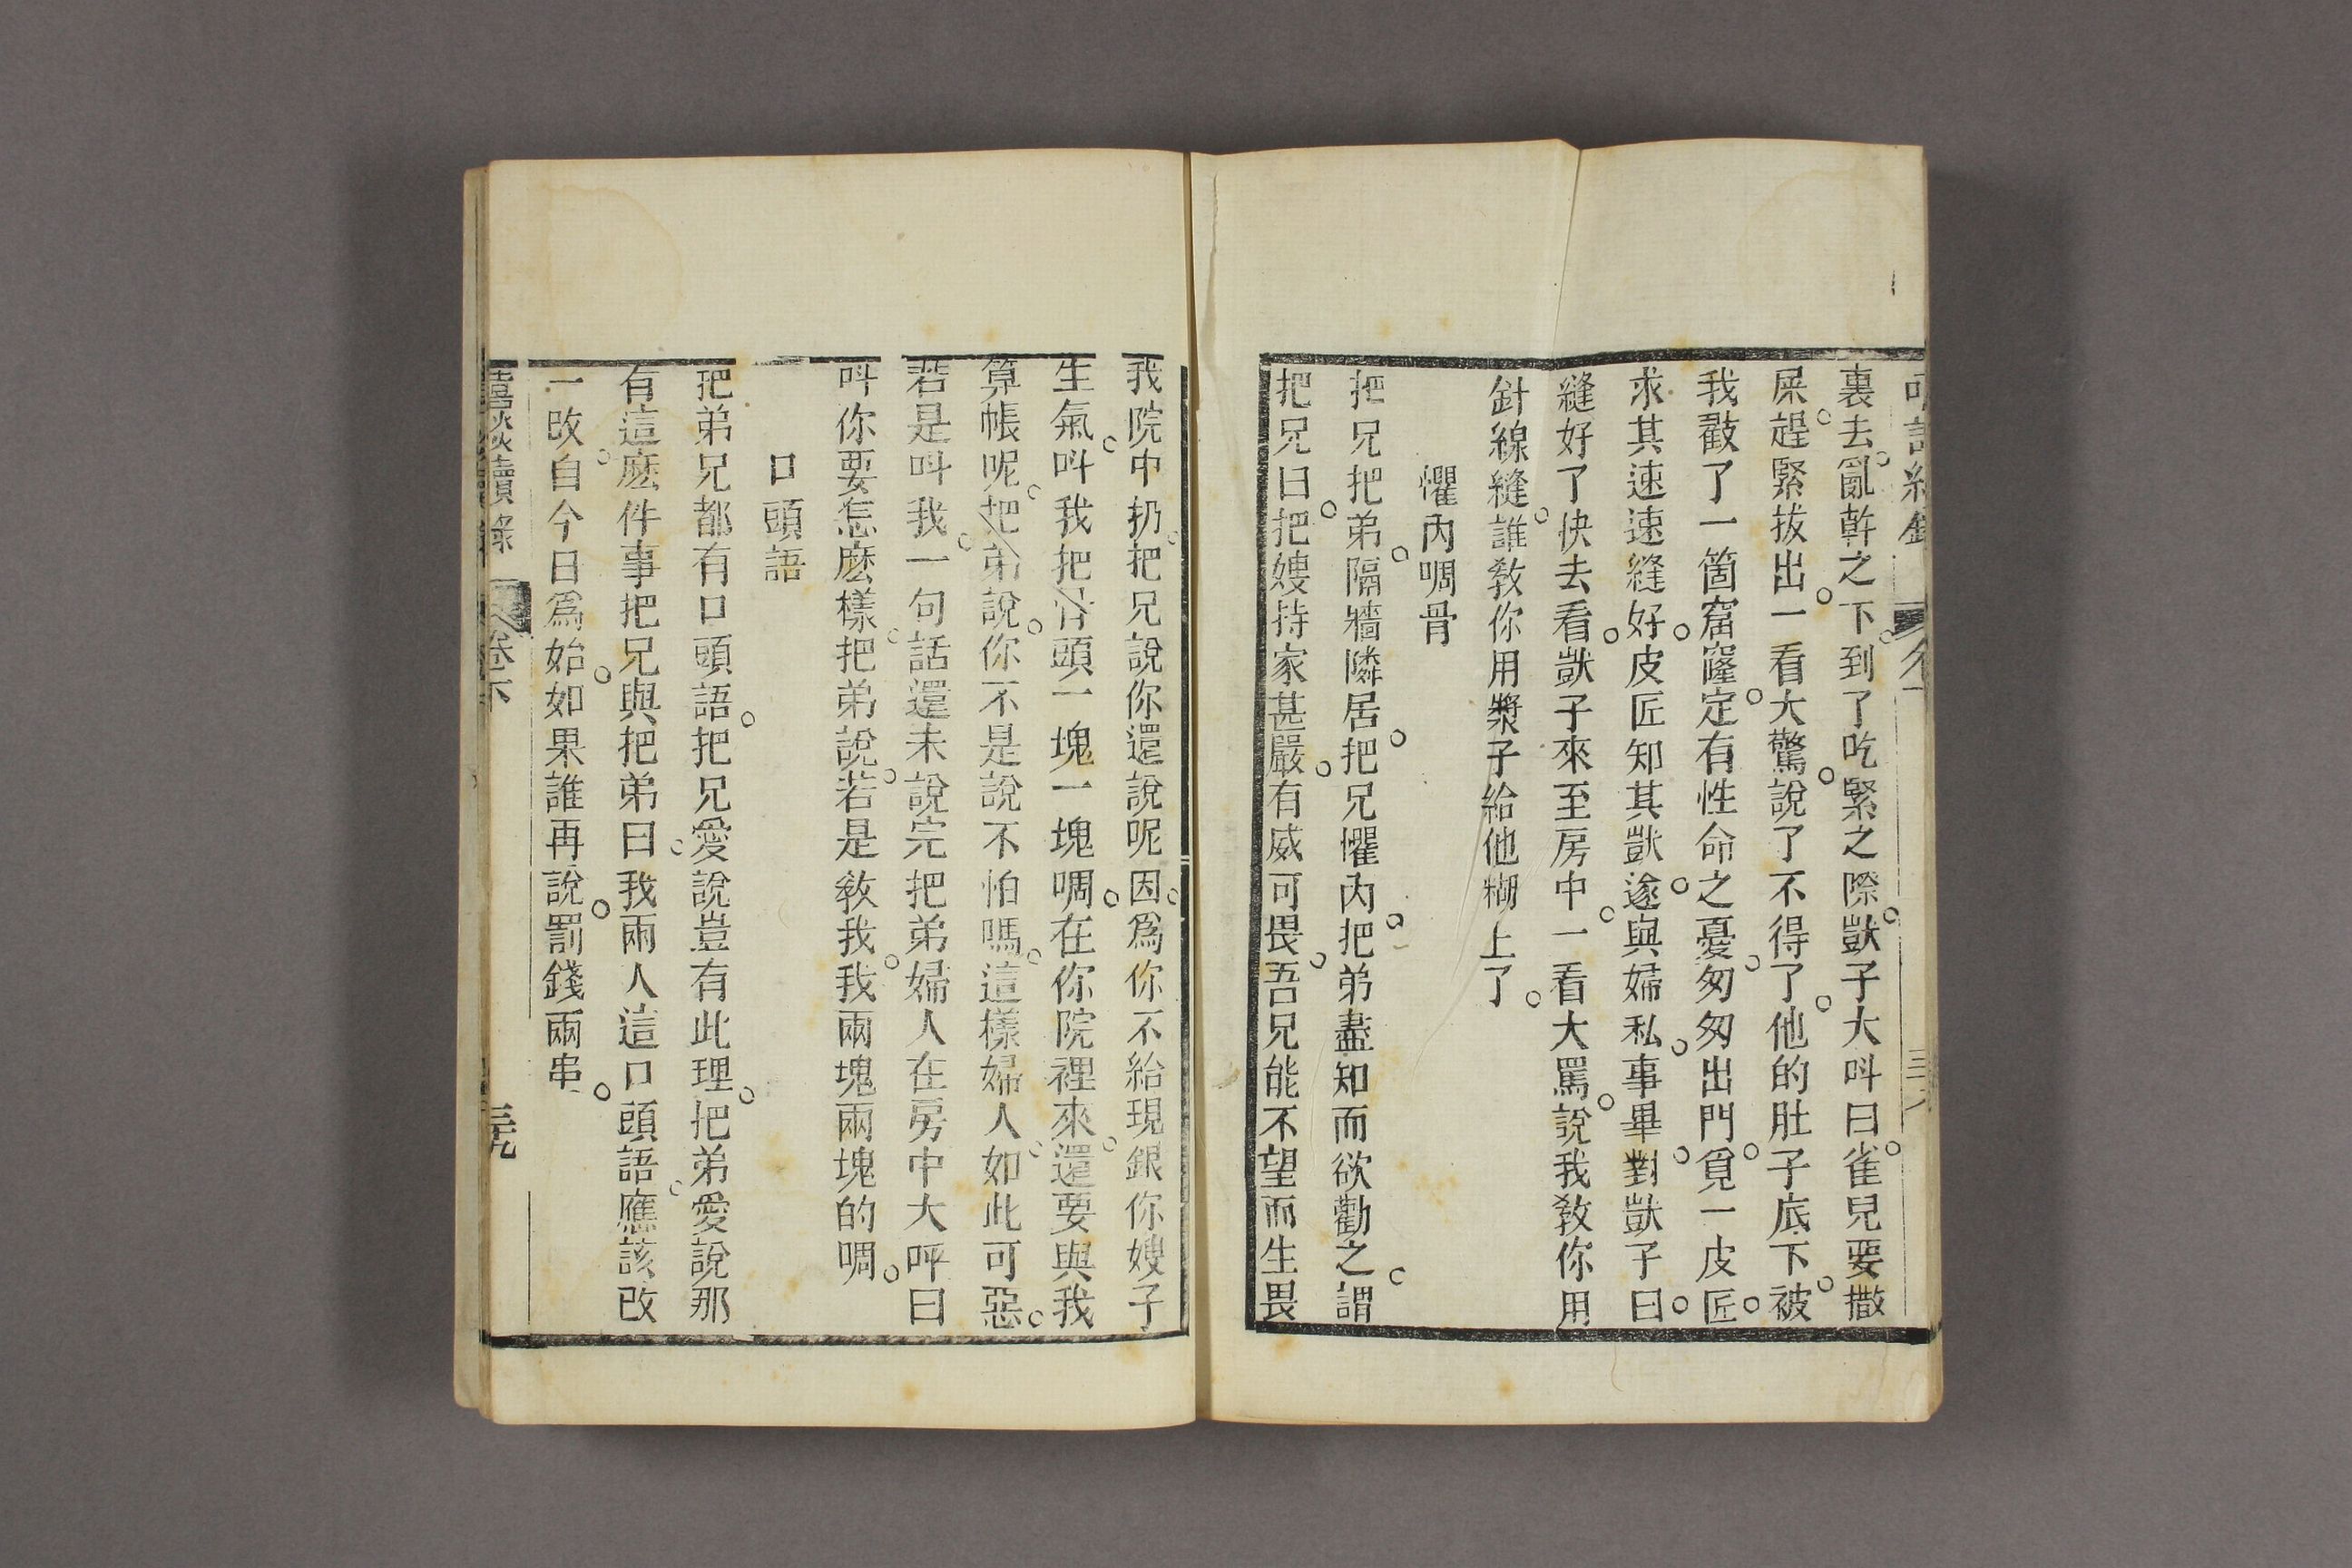 裏去亂斡之下到了吃緊之際獃子大呌曰雀兒要撒
屎趕緊拔出一看大驚說了不得了他的肚子底下被
我戳了一箇窟窿定有性命之憂匆匆出門覓一皮匠
求其速速縫好皮匠知其獃遂與婦私事畢對獃子曰
縫好了快去看獃子來至房中一看大罵說我教你用
針線縫誰教你用漿子給他糊上了
懼內啁骨
把兄把弟隔牆隣居把兄懼內把弟盡知而欲勸之謂
把兄曰把嫂持家甚嚴有威可畏吾兄能不望而生畏
我院中扔把兄說你還說呢因爲你不給現銀你嫂子
生氣呌我把骨頭一塊一塊啁在你院裡來還要與我
算帳呢把弟說你不是說不怕嗎這樣婦人如此可惡
若是呌我一句話還未說完把弟婦人在房中大呼曰
呌你要怎麽樣把弟說若是敎我我兩塊兩塊的啁
口頭語
把弟兄都有口頭語把兄愛說豈有此理把弟愛說那
有這麽件事把兄與把弟曰我兩人這口頭語應該改
一改自今日爲始如果誰再說罰錢兩串
嘻談續錄 卷下 三九